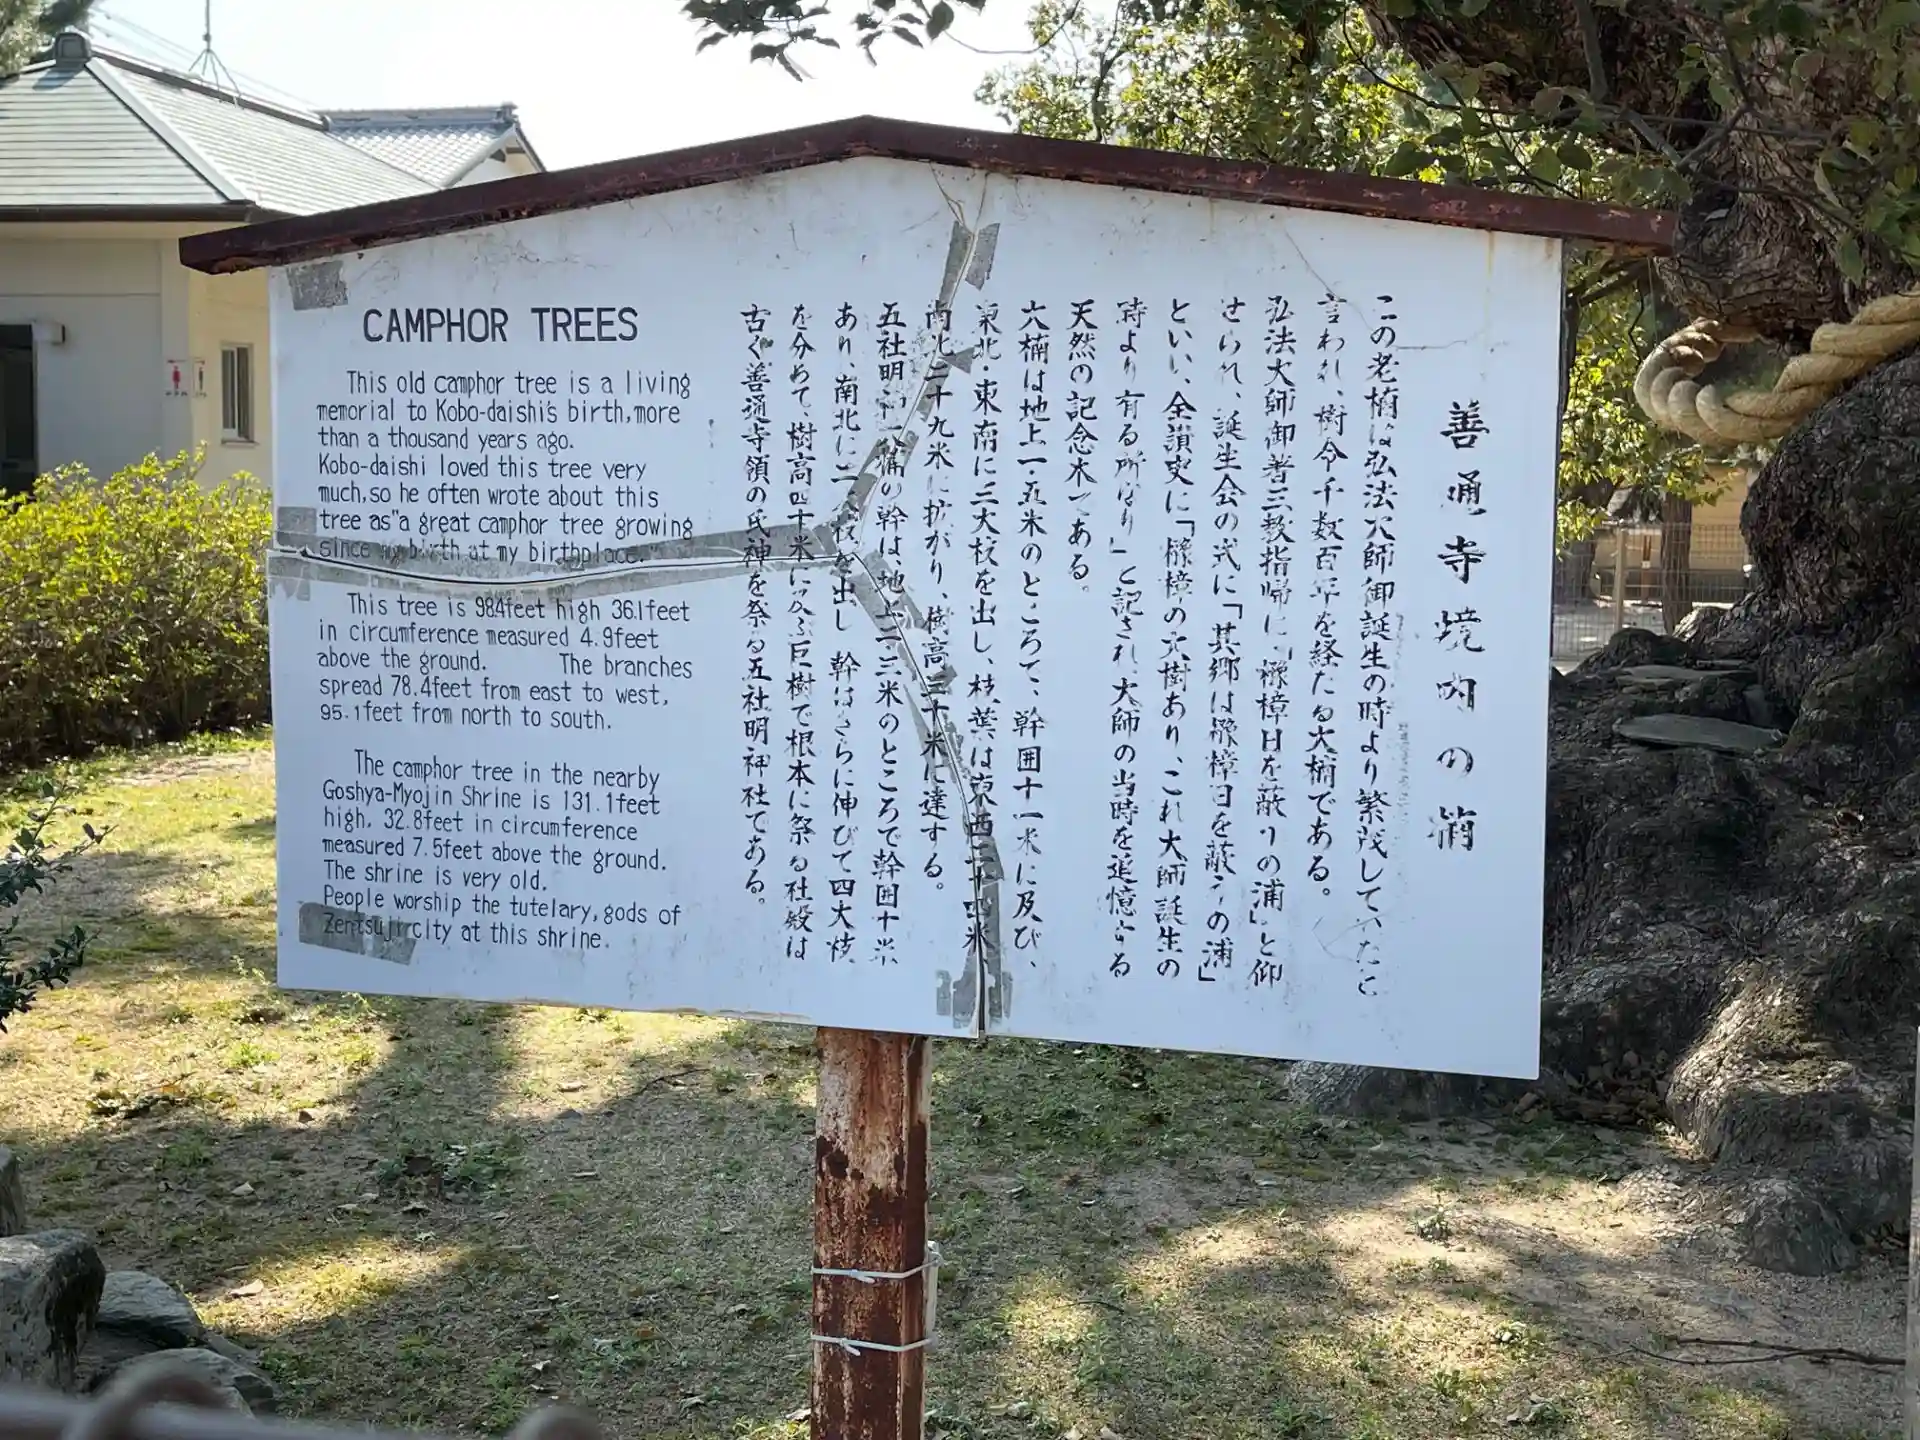 CAMPHOR TREES
This old camphor tree is a living
memorial to Kobo-daishi's birth, more
than a thousand years ago.
Kobo-daishi loved this tree very
much, so he often wrote about this
tree as "a great camphor tree growing
since my birth at my birthplace."
This tree is 98.4feet high 36.1feet
in circumference measured 4.9feet
above the ground. The branches
spread 78.4feet from east to west,
95.1feet from north to south.
The camphor tree in the nearby
Goshya-Myojin Shrine is 131.1feet
high, 32.8feet in circumference
measured 7.5feet above the ground.
The shrine is very old.
People worship the tutelary, gods of
Zentsuji city at this shrine.
善通寺境内の楠
この老楠は弘法大師御誕生の時より繁茂していたと
言われ、樹令千数百年を経たる大楠である。
弘法大師御著三教指帰に「櫲樟日を蔽うの浦」と仰
せられ、誕生会の式に「其郷は櫲樟日を蔽うの浦」
といい、全讃史に「櫲樟の大樹あり、これ大師誕生の
時より有る所なり」と記され、大師の当時を追憶する
天然の記念木である。
六楠は地上一・五米のところで、幹囲十一米に及び、
東北・東南に三大枝を出し、枝葉は東西二十四米
南北二十九米に拡がり、樹高三十米に達する。
五社明神の楠の幹は、地上二・三米のところで幹囲十米
あり、南北に二大枝を出し 幹はさらに伸びて四大枝
を分めて、樹高四十米に及ぶ巨樹で根本に祭る社殿は
古く善通寺領の氏神を祭る五社明神社である。